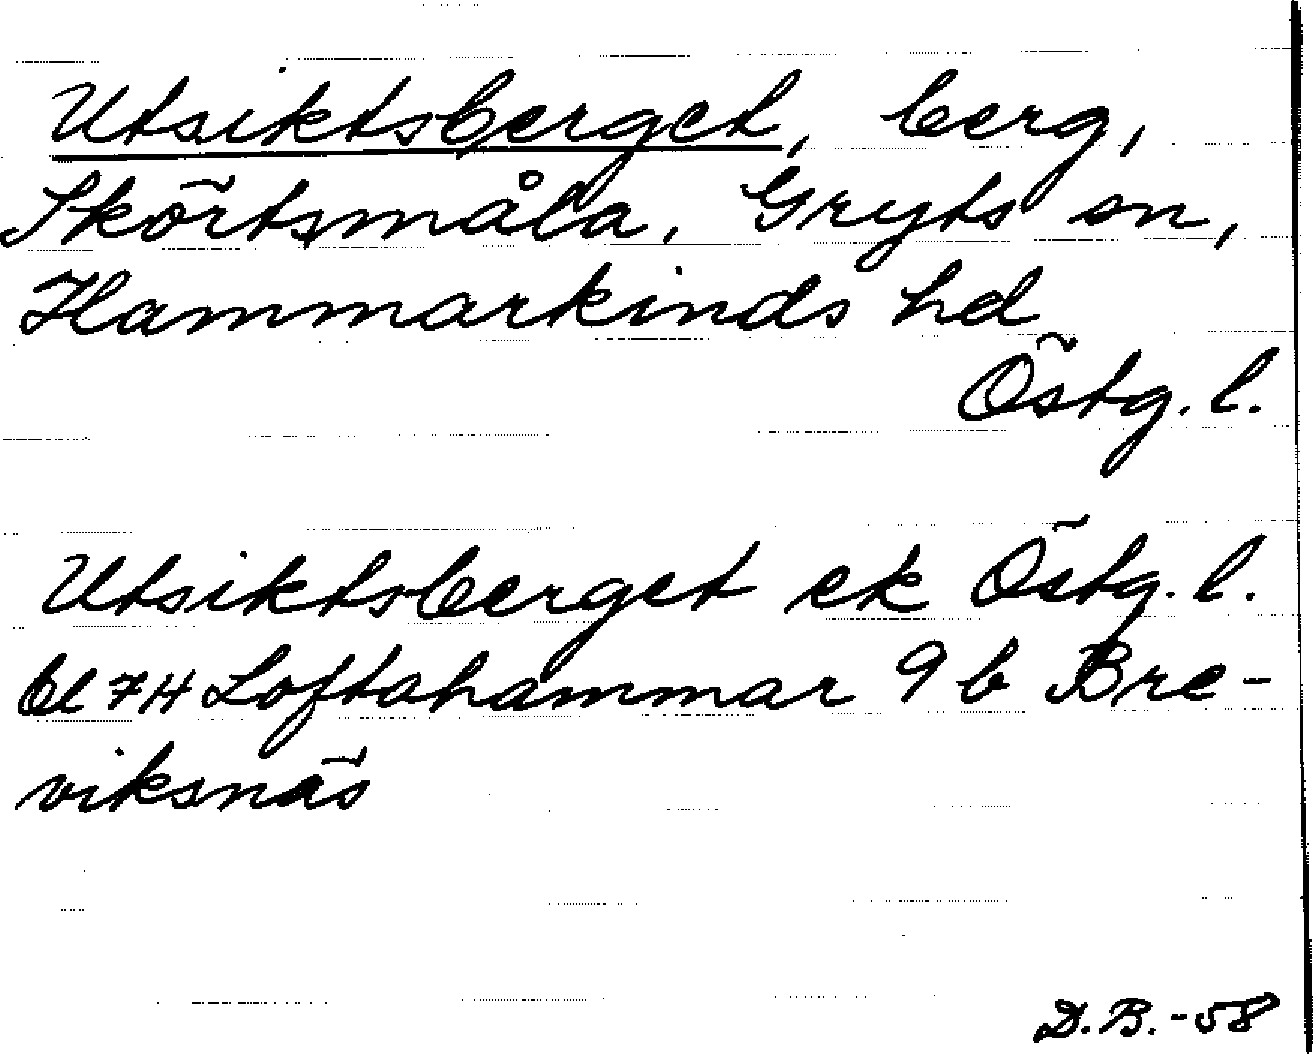 Utsiktsberget, berg,
Skörtsmåla, Gryts sn,
Hammarkinds hd
Östg. l.
Utsiktsberget ek Östg. l.
bl 7H Loftahammar 9 b Bre-
viksnäs
D.B.-58